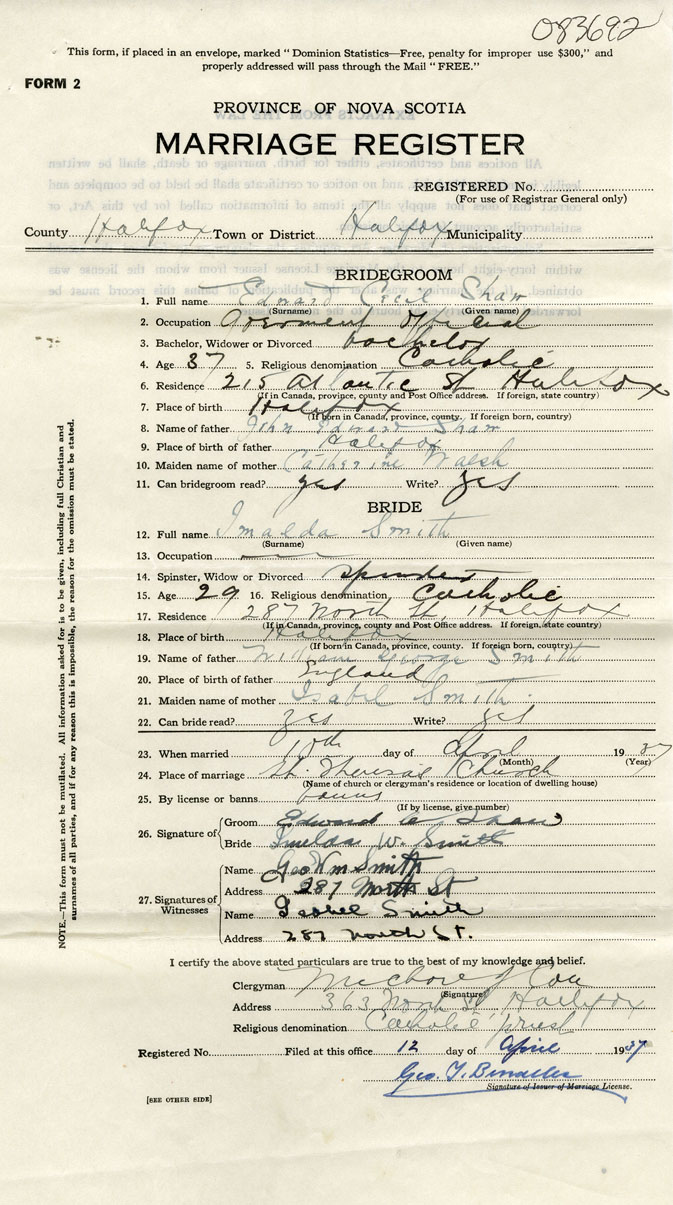 083692
This form, if placed in an envelope, marked "Dominion Statistics—Free, penalty for improper use $300," and
properly addressed will pass through the Mail "FREE."
FORM 2
PROVINCE OF NOVA SCOTIA
MARRIAGE REGISTER
REGISTERED No.
(For use of Registrar General only)
County Halifax Town or District Halifax Municipality
BRIDEGROOM
1. Full name Edward Cecil Shaw
(Surname) (Given name)
2. Occupation
3. Bachelor, Widower or Divorced bachelor
4. Age 37 5. Religious denomination Catholic
6. Residence 215 Atlantic St Halifax
(If in Canada, province, county and Post Office address. If foreign, state country)
7. Place of birth Halifax
(If born in Canada, province, county. If foreign born, country)
8. Name of father John Edward Shaw
9. Place of birth of father Halifax
10. Maiden name of mother Catherine Walsh
11. Can bridegroom read? yes Write? yes
BRIDE
12. Full name Imalda Smith
(Surname) (Given name)
13. Occupation
14. Spinster, Widow or Divorced spinster
15. Age 29 16. Religious denomination Catholic
17. Residence 287 North St, Halifax
(If in Canada, province, county and Post Office address. If foreign, state country)
18. Place of birth Halifax
(If born in Canada, province, county. If foreign born, country)
19. Name of father William George Smith
20. Place of birth of father England
21. Maiden name of mother Isabel Smith
22. Can bride read? yes Write? yes
23. When married 10th day of April 1937
(Month) (Year)
24. Place of marriage St. Theresas Church
(Name of church or clergyman's residence or location of dwelling house)
25. By license or banns banns
(If by license, give number)
26. Signature of
Groom Edward C Shaw
Bride Imelda W. Smith
27. Signatures of Witnesses
Name Geo Wm Smith
Address 287 North St
Name Isobel Smith
Address 287 North St.
I certify the above stated particulars are true to the best of my knowledge and belief.
Clergyman
(Signature)
Address 363 North St Halifax
Religious denomination Catholic priest
Registered No. Filed at this office 12 day of April 1937
Geo. T.
Signature of Issuer of Marriage License.
[SEE OTHER SIDE]
NOTE.—This form must not be mutilated. All information asked for is to be given, including full Christian and
surnames of all parties, and if for any reason this is impossible, the reason for the omission must be stated.